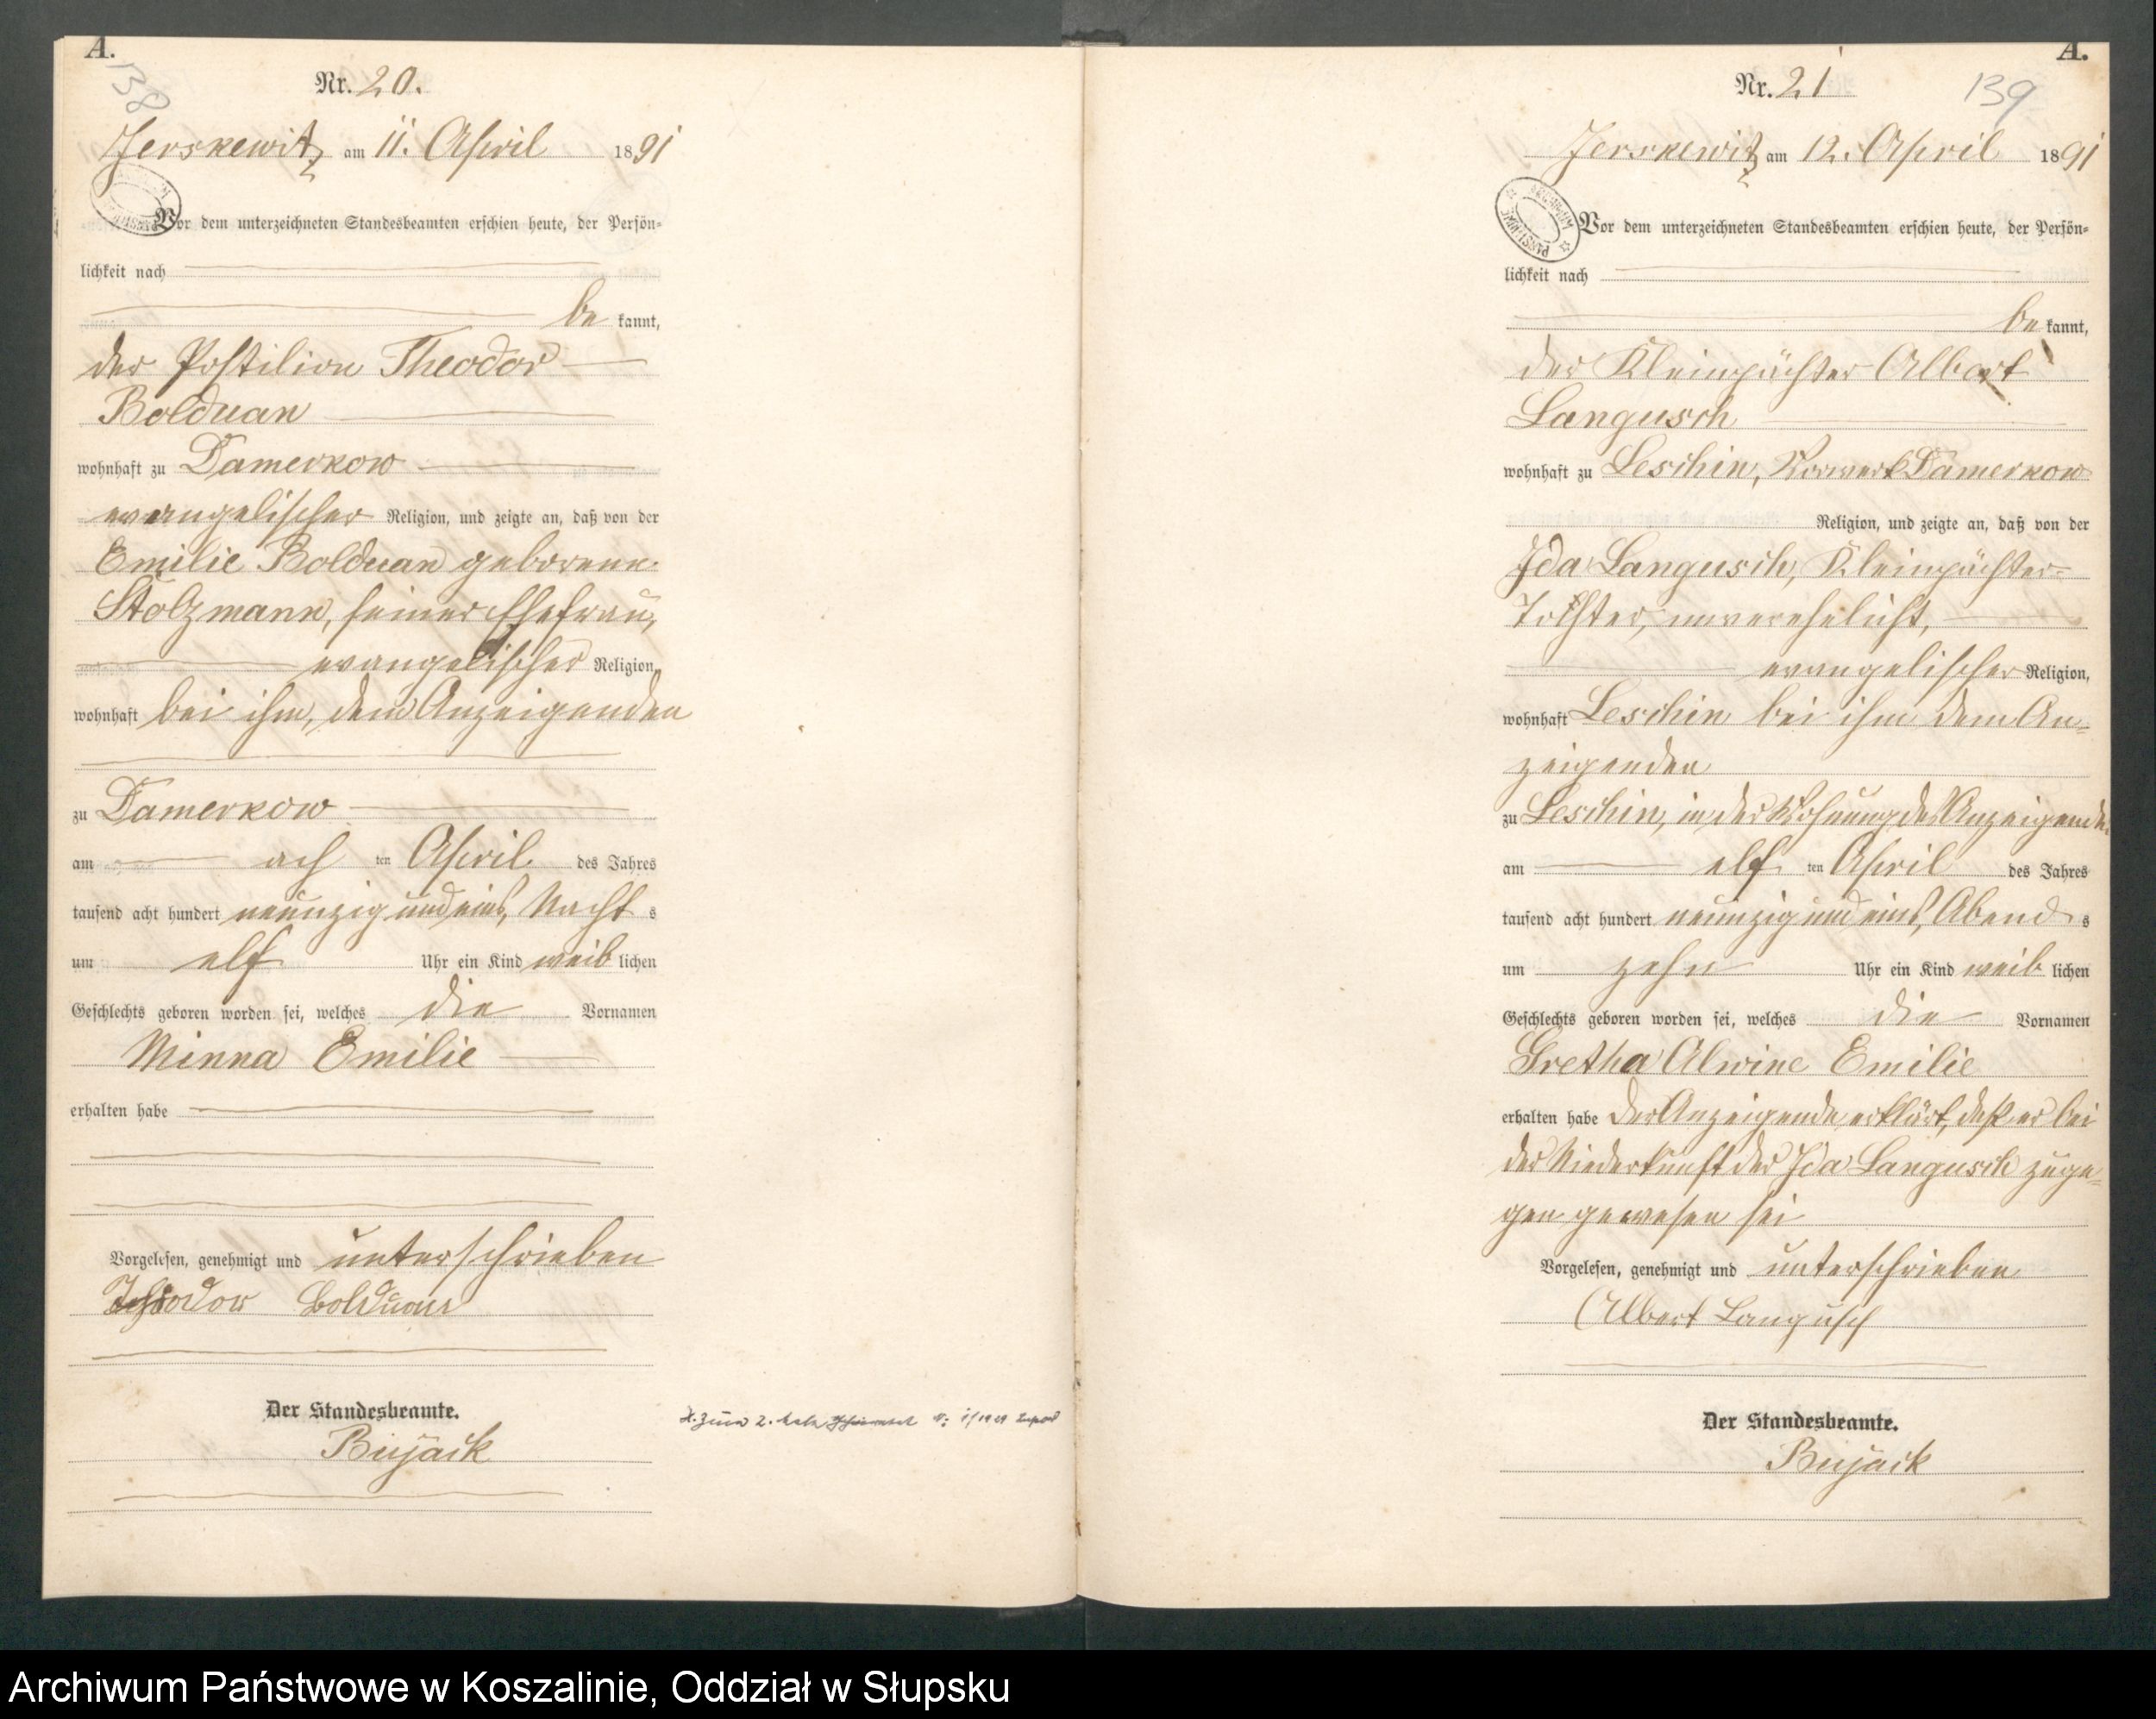 A.
138
Nr. 20.
Jerskewitz am 11. April 1891
Vor dem unterzeichneten Standesbeamten erschien heute, der Persön=
lichkeit nach
be kannt,
der Postilion Theodor
Bolduan
wohnhaft zu Damerkow
evangelischer Religion, und zeigte an, daß von der
Emilie Bolduan geborene
Stolzmann, seiner Ehefrau,
evangelischer Religion,
wohnhaft bei ihm, dem Anzeigenden
zu Damerkow
am ach ten April des Jahres
tausend acht hundert neunzig und eins, Nacht s
um elf Uhr ein Kind weib lichen
Geschlechts geboren worden sei, welches die Vornamen
Minna Emilie
erhalten habe
Vorgelesen, genehmigt und unterschrieben
Theodor Bolduan
Der Standesbeamte.
Bujack
zum 2.
A.
Nr. 21
139
Jerskewitz am 12. April 1891
Vor dem unterzeichneten Standesbeamten erschien heute, der Persön=
lichkeit nach
be kannt,
der Kleinpächter Albert
Langusch
wohnhaft zu Leschin, Vorwerk Damerkow
Religion, und zeigte an, daß von der
Ida Langusch, Kleinpächter=
Tochter, unverehelicht,
evangelischer Religion,
wohnhaft Leschin bei ihm dem An=
zeigenden
zu Leschin, in der Wohnung des Anzeigenden
am elf ten April des Jahres
tausend acht hundert neunzig und eins, Abend s
um zehn Uhr ein Kind weib lichen
Geschlechts geboren worden sei, welches die Vornamen
Gretha Alwine Emilie
erhalten habe Der Anzeigende erklärt, daß er bei
der Niederkunft der Ida Langusch zuge=
gen gewesen sei
Vorgelesen, genehmigt und unterschrieben
Albert Langusch
Der Standesbeamte.
Bujack
Archiwum Państwowe w Koszalinie, Oddział w Słupsku